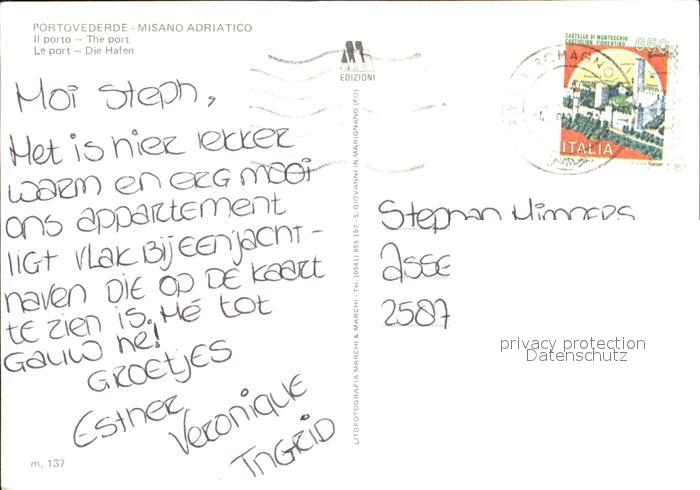 PORTOVEDERDE - MISANO ADRIATICO
Il porto — The port
Le port — Die Hafen
EDIZIONI
CASTELLO DI MONTECCHIO
CASTIGLION FIORENTINO
650
ITALIA
Moi Steph,
Het is hier lekker
warm en erg mooi
ons appartement
ligt vlak bij een jacht-
haven die op de kaart
te zien is. Hé tot
gauw hè!
Groetjes
Esther
Veronique
Ingrid
LITOFOTOGRAFIA MARCHI & MARCHI - Tel. (0541) 955 157 - S. GIOVANNI IN MARIGNANO (FO)
Stephan
Asse
2587
privacy protection
Datenschutz
m. 137